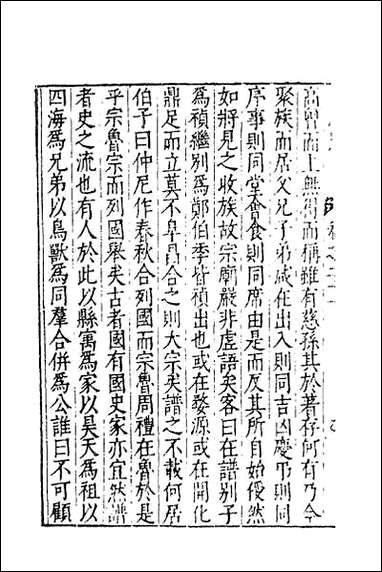 高曾而上無寓而稱雖有慈孫其於著存何有乃今
聚族而居父兄子弟咸在出入則同吉凶慶弔則同
序事則同堂會食則同席由是而反其所自始優然
如將見之收族故宗廟嚴非虛語矣客曰在譜別子
為禎繼別為鄭伯季皆禎出也或在婺源或在開化
鼎足而立莫不阜昌合之則大宗矣譜之不載何居
伯子曰仲尼作春秋合列國而宗魯周禮在魯於是
乎宗魯宗而列國舉矣古者國有國史家亦宜然譜
者史之流也有人於此以縣寓為家以昊天為祖以
四海為兄弟以鳥獸為同羣合併為公誰曰不可顧